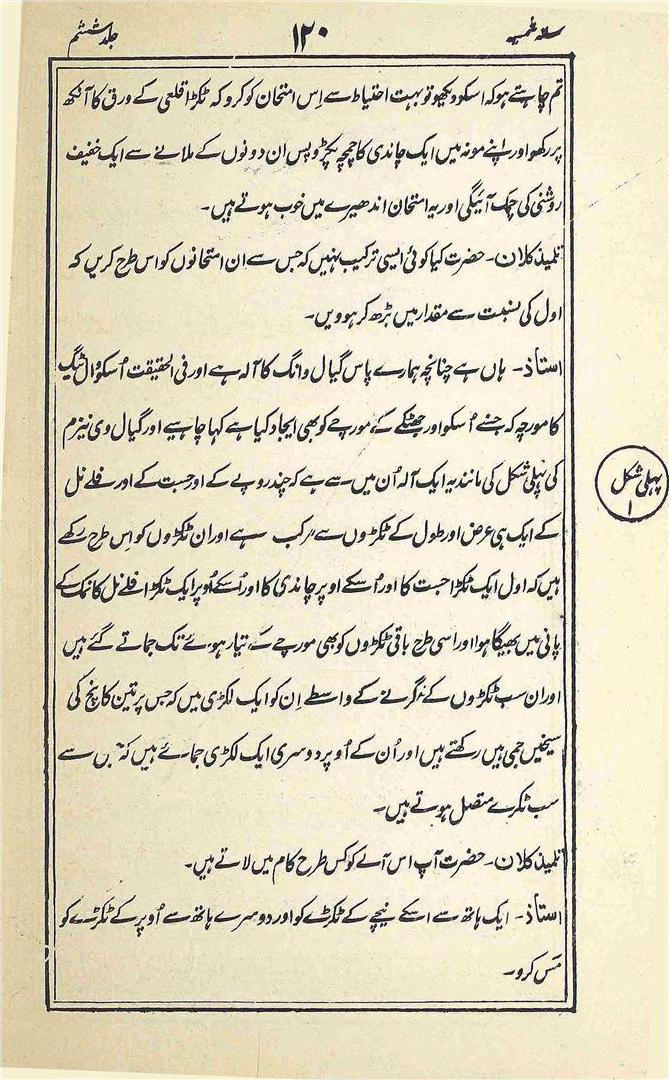 ستہ شمسیہ
۱۲۰
جلد ششم
تم چاہتے ہو کہ اسکو دیکھو تو بہت احتیاط سے اِس امتحان کو کرو کہ ٹکڑا قلعی کے ورق کا آنکھ
پر رکھو اور اپنے مونہ میں ایک چاندی کا چمچہ پکڑو پس ان دونوں کے ملانے سے ایک خفیف
روشنی کی چمک آئیگی اور یہ امتحان اندھیرے میں خوب ہوتے ہیں۔
تلمیذ کلان۔ حضرت کیا کوئی ایسی ترکیب نہیں کہ جس سے اِن امتحانوں کو اس طرح کریں کہ
اول کی نسبت سے مقدار میں بڑھ کر ہوویں۔
استاذ۔ ہاں ہے چنانچہ ہمارے پاس گیال وانگ کا آلہ ہے اور فی الحقیقت اُسکو وال ٹیگ
کا مورچہ کہ جسنے اُسکو اور جھٹکے کے مورچے کو بھی ایجاد کیا ہے کہا چاہیے اور گیال وی نیزم
کی پہلی شکل کی مانند یہ ایک آلہ اُن میں سے ہے کہ چند روپے کے اور جست کے اور فلے نل
کے ایک ہی عرض اور طول کے ٹکڑوں سے مرکب ہے اور ان ٹکڑوں کو اِس طرح رکھے
ہیں کہ اول ایک ٹکڑا جست کا اور اُسکے اوپر چاندی کا اور اُسکے اُوپر ایک ٹکڑا فلے نل کا نمک کے
پانی میں بھیگا ہوا اور اسی طرح باقی ٹکڑوں کو بھی مورچے کے تیار ہوئے تک جماتے گئے ہیں
اور ان سب ٹکڑوں کے نگرنے کے واسطے اِن کو ایک لکڑی میں کہ جس پر تین کانچ کی
سیخیں جمی ہیں رکھتے ہیں اور اُن کے اُوپر دوسری ایک لکڑی جمائے ہیں کہ جس سے
سب ٹکرے متصل ہوتے ہیں۔
تلمیذ کلان۔ حضرت آپ اس آلے کو کس طرح کام میں لاتے ہیں۔
استاذ۔ ایک ہاتھ سے اسکے نیچے کے ٹکڑے کو اور دوسرے ہاتھ سے اُوپر کے ٹکڑے کو
مَس کرو۔
پہلی شکل
۱